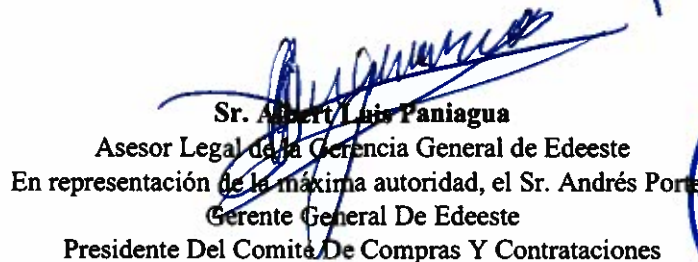 Sr. Albert Luis Paniagua
Asesor Legal de la Gerencia General de Edeeste
En representación de la máxima autoridad, el Sr. Andrés Porte
Gerente General De Edeeste
Presidente Del Comité De Compras Y Contrataciones